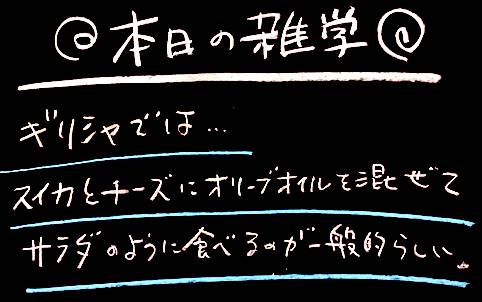 本日の雑学
ギリシャでは...
スイカとチーズにオリーブオイルを混ぜて
サラダのように食べるのが一般的らしい。